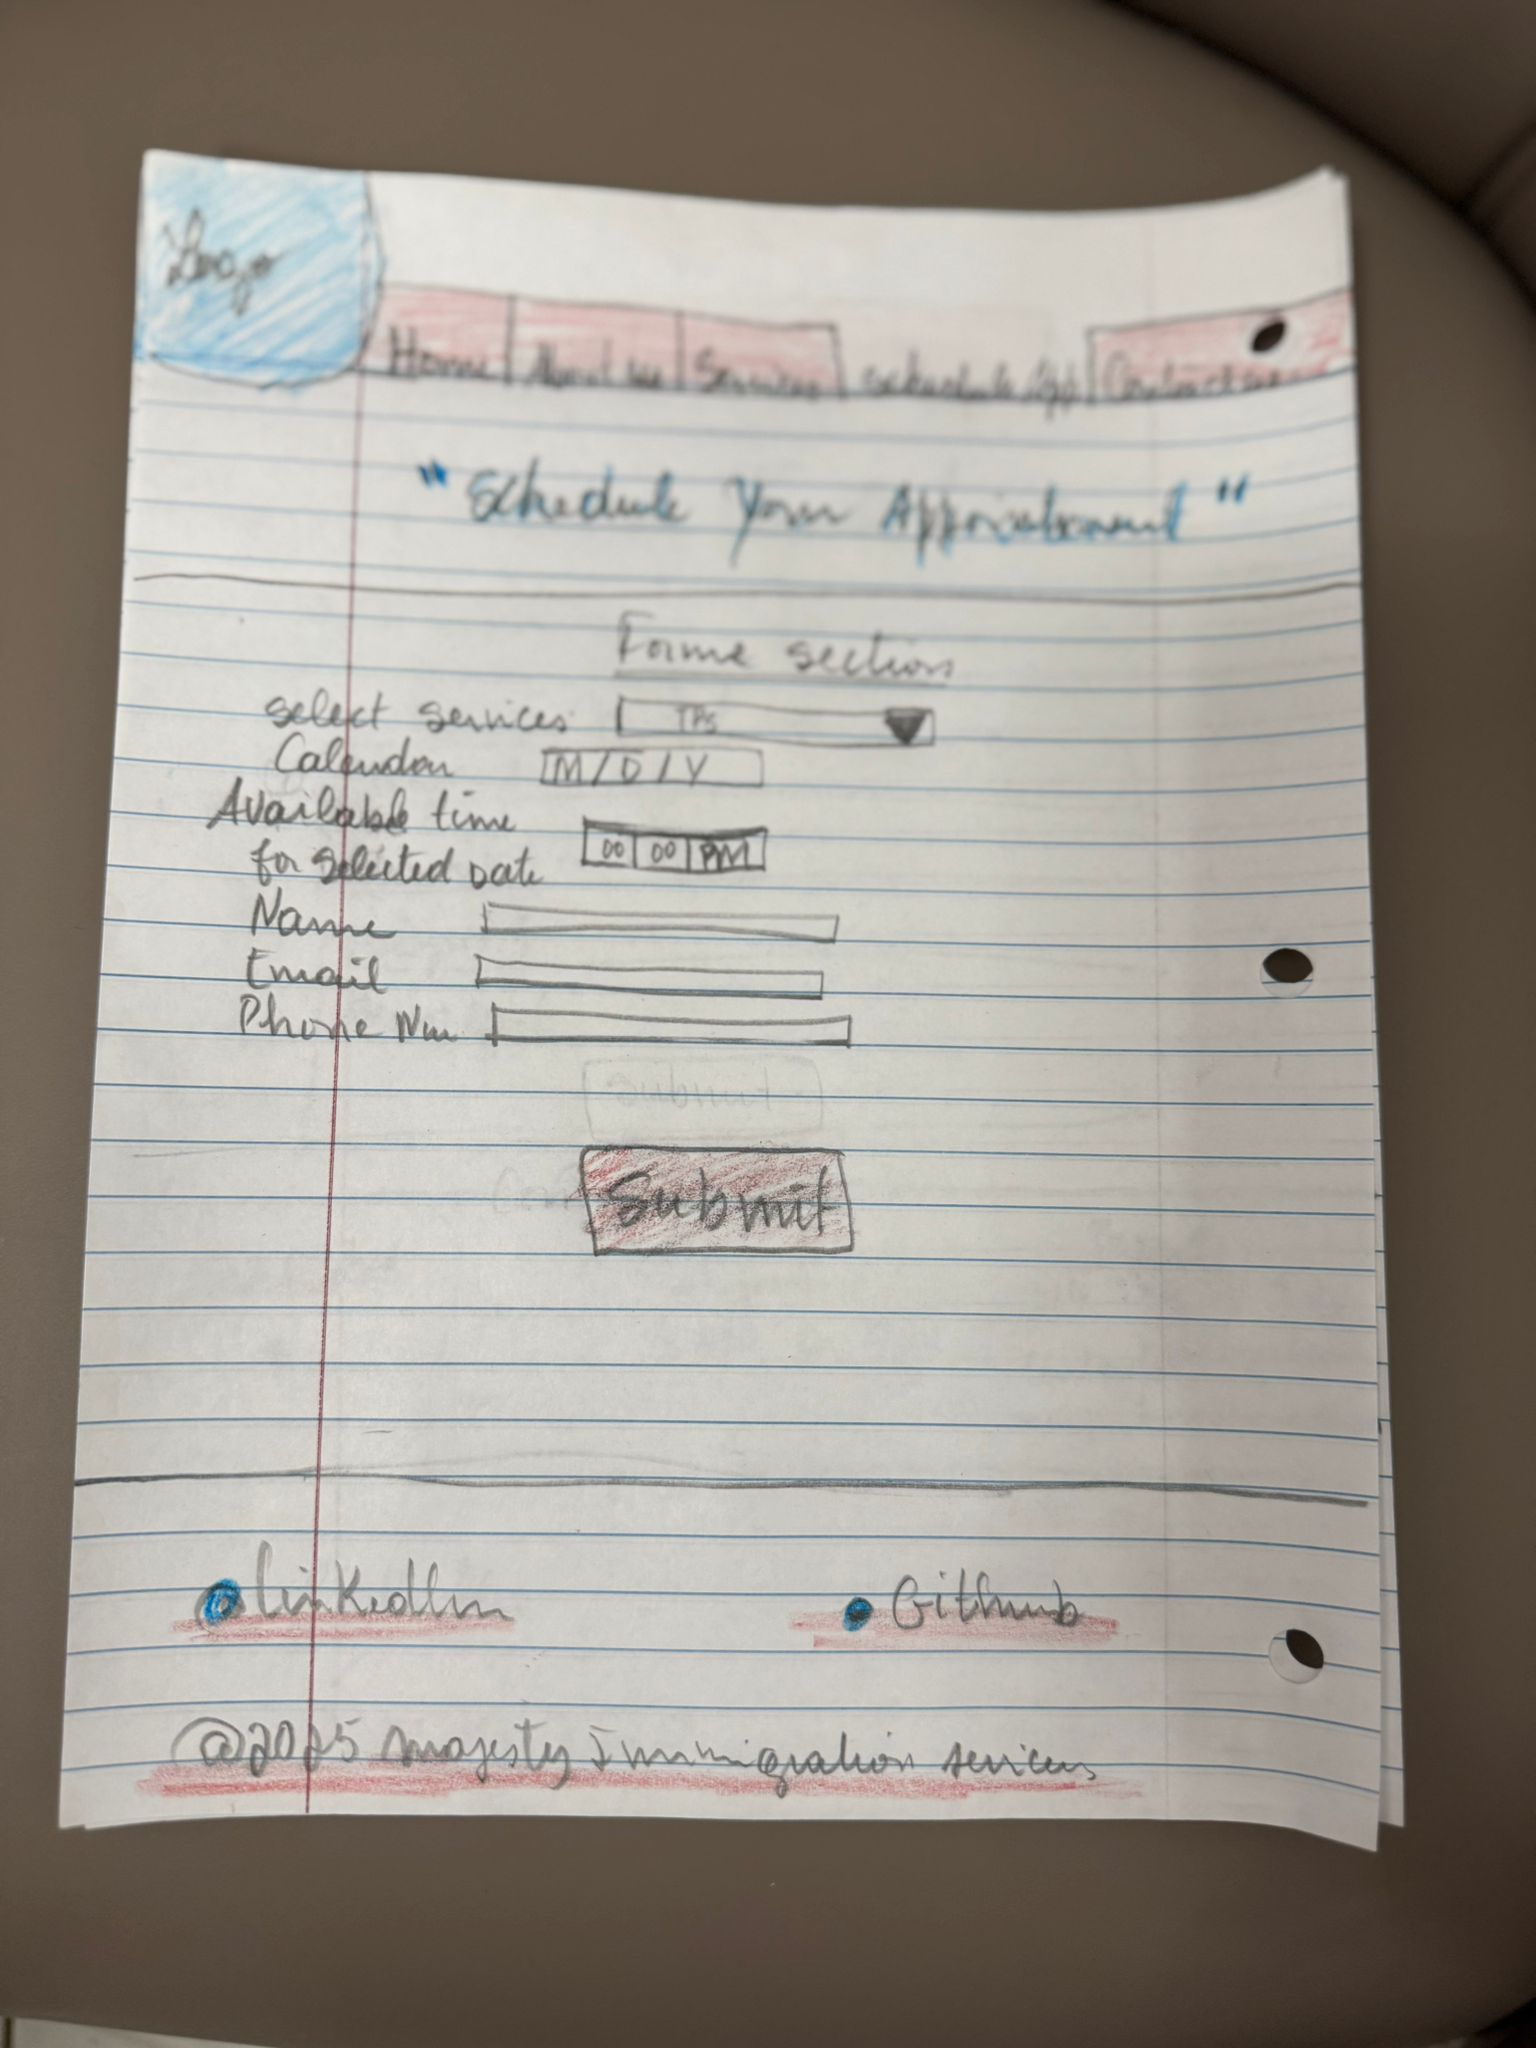 Logo
Home About us Services Schedule App Contact us
"Schedule Your Appointment"
Forme section
select services TPS
Calendar M/D/Y
Available time
for selected Date 00 00 PM
Name
Email
Phone Nu
Submit
Submit
LinkedIn Github
@2025 majesty Immigration services